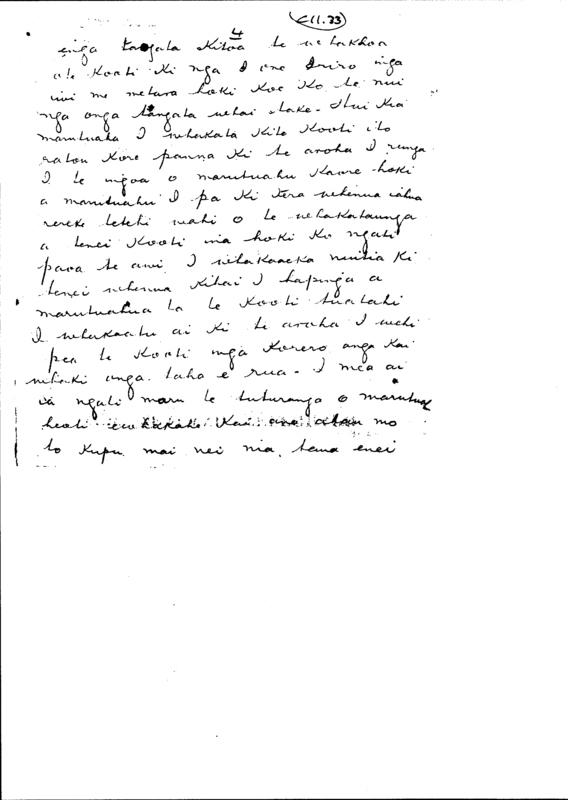 C11.23
4
enga tangata Kitoa te whakhoa
ote Kooti Ki nga I one I riro nga
iwi me metara hoki Koe Ko te nui
nga onga tangata whai take. Hui Kia
marutuaha I whakata Kite Kooti ito
ratou Kore panna Ki te aroha I runga
I te ngoa o marutuahu Kaore hoki
a marutuahu I pa Ki tera whenua
rereke tetehi wahi o te whakataunga
a tenei Kooti ina hoki Ko ngati
paoa te awi I whakaaeka Ki
tenei whenua Kihai I hapinga a
marutuahua ta te Kooti tuatahi
I whakaatu ai Ki te aroha I wehi
pea te Kooti nga Korero anga Kai
whaki anga taha e rua - I mea ai
ngati maru te tuturanga o marutua
heoti Kai ano atau mo
to Kupu mai nei nia, tena enei